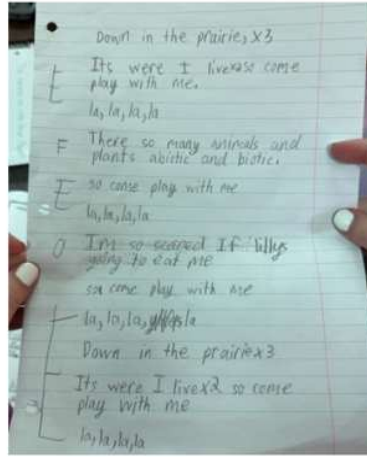 Down in the prairie, x3
E Its were I livex2so come
play with me.
la, la, la, la
F There so many animals and
plants abiotic and biotic.
E so come play with me
la, la, la, la
O Im so scared If
going to eat me
so come play with me
la, la, la, la
Down in the prairie x3
Its were I live x2 so come
play with me
la, la, la, la